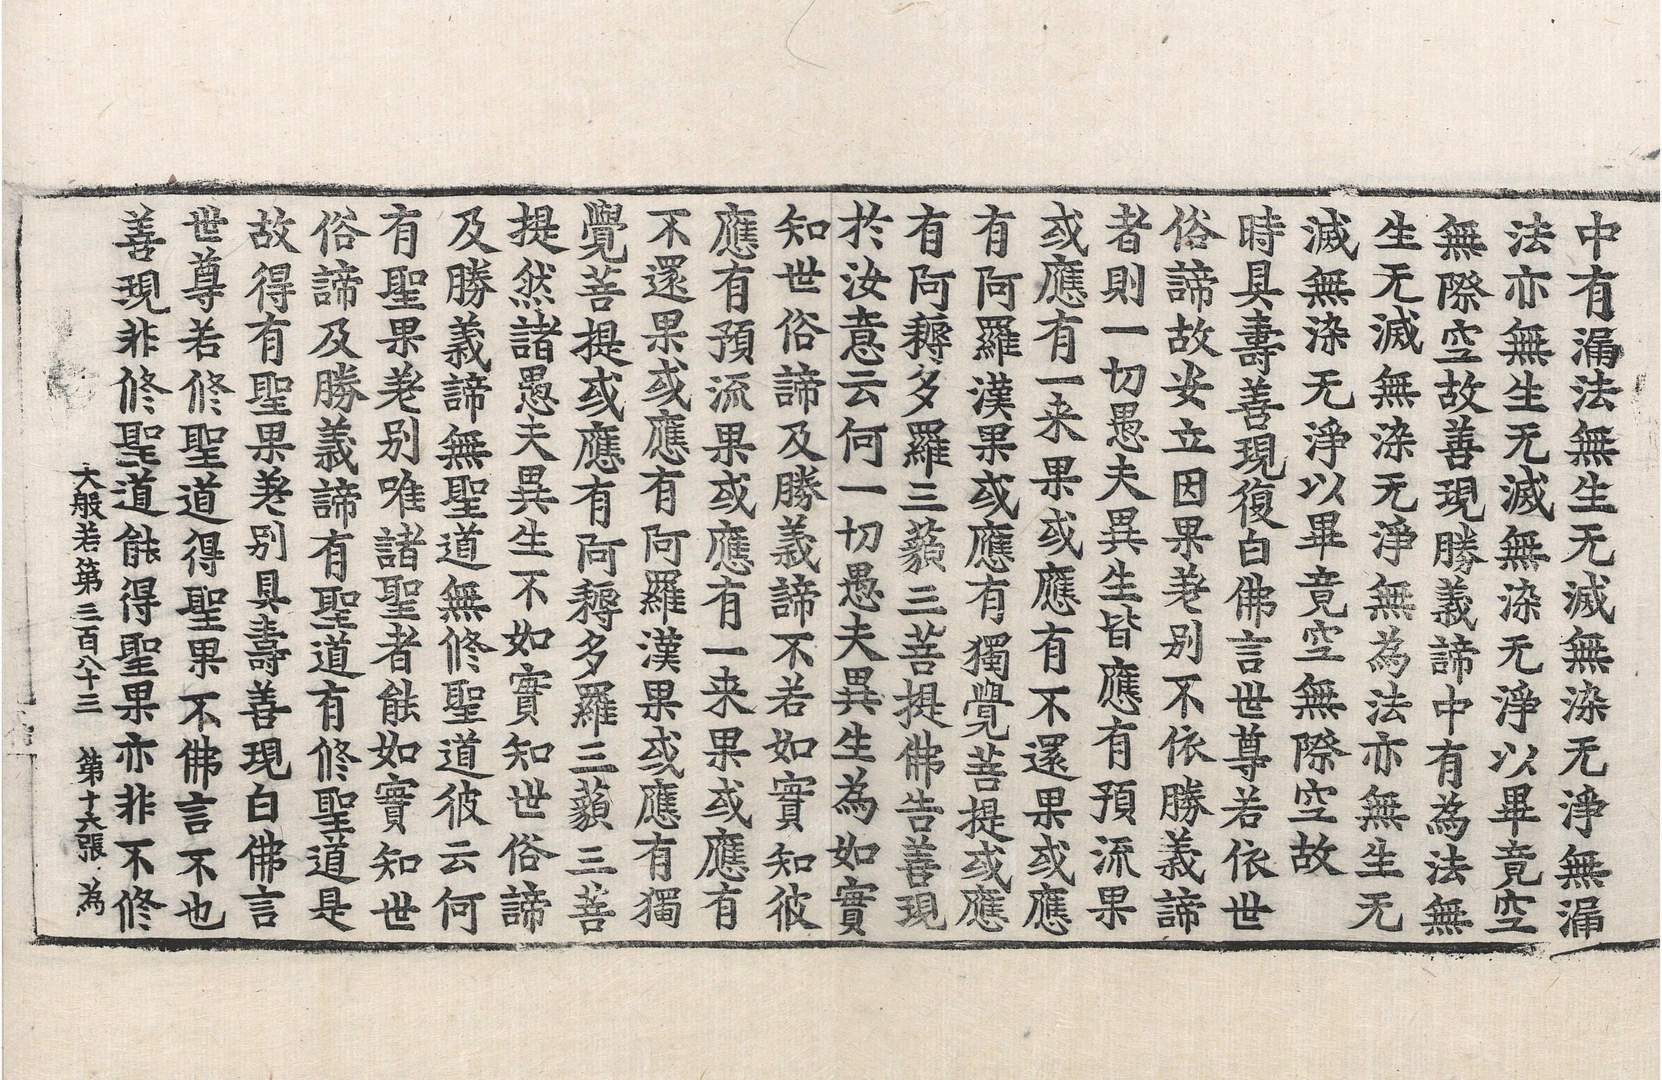 中有漏法無生无滅無染无淨無漏
法亦無生无滅無染无淨以畢竟空
無際空故善現勝義諦中有為法無
生无滅無染无淨無為法亦無生无
滅無染无淨以畢竟空無際空故
時具壽善現復白佛言世尊若依世
俗諦故安立因果差别不依勝義諦
者則一切愚夫異生皆應有預流果
或應有一来果或應有不還果或應
有阿羅漢果或應有獨覺菩提或應
有阿耨多羅三藐三菩提佛告善現
於汝意云何一切愚夫異生為如實
知世俗諦及勝義諦不若如實知彼
應有預流果或應有一来果或應有
不還果或應有阿羅漢果或應有獨
覺菩提或應有阿耨多羅三藐三菩
提然諸愚夫異生不如實知世俗諦
及勝義諦無聖道無修聖道彼云何
有聖果差别唯諸聖者能如實知世
俗諦及勝義諦有聖道有修聖道是
故得有聖果差别具壽善現白佛言
世尊若修聖道得聖果不佛言不也
善現非修聖道能得聖果亦非不修
大般若第三百八十三 第十六張 為